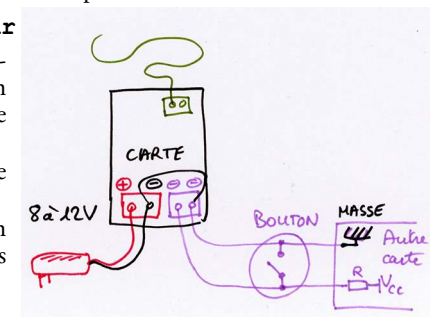 CARTE
⊕ ⊖ ⊖ ⊖
8 à 12V
BOUTON
MASSE
Autre
carte
R
Vcc